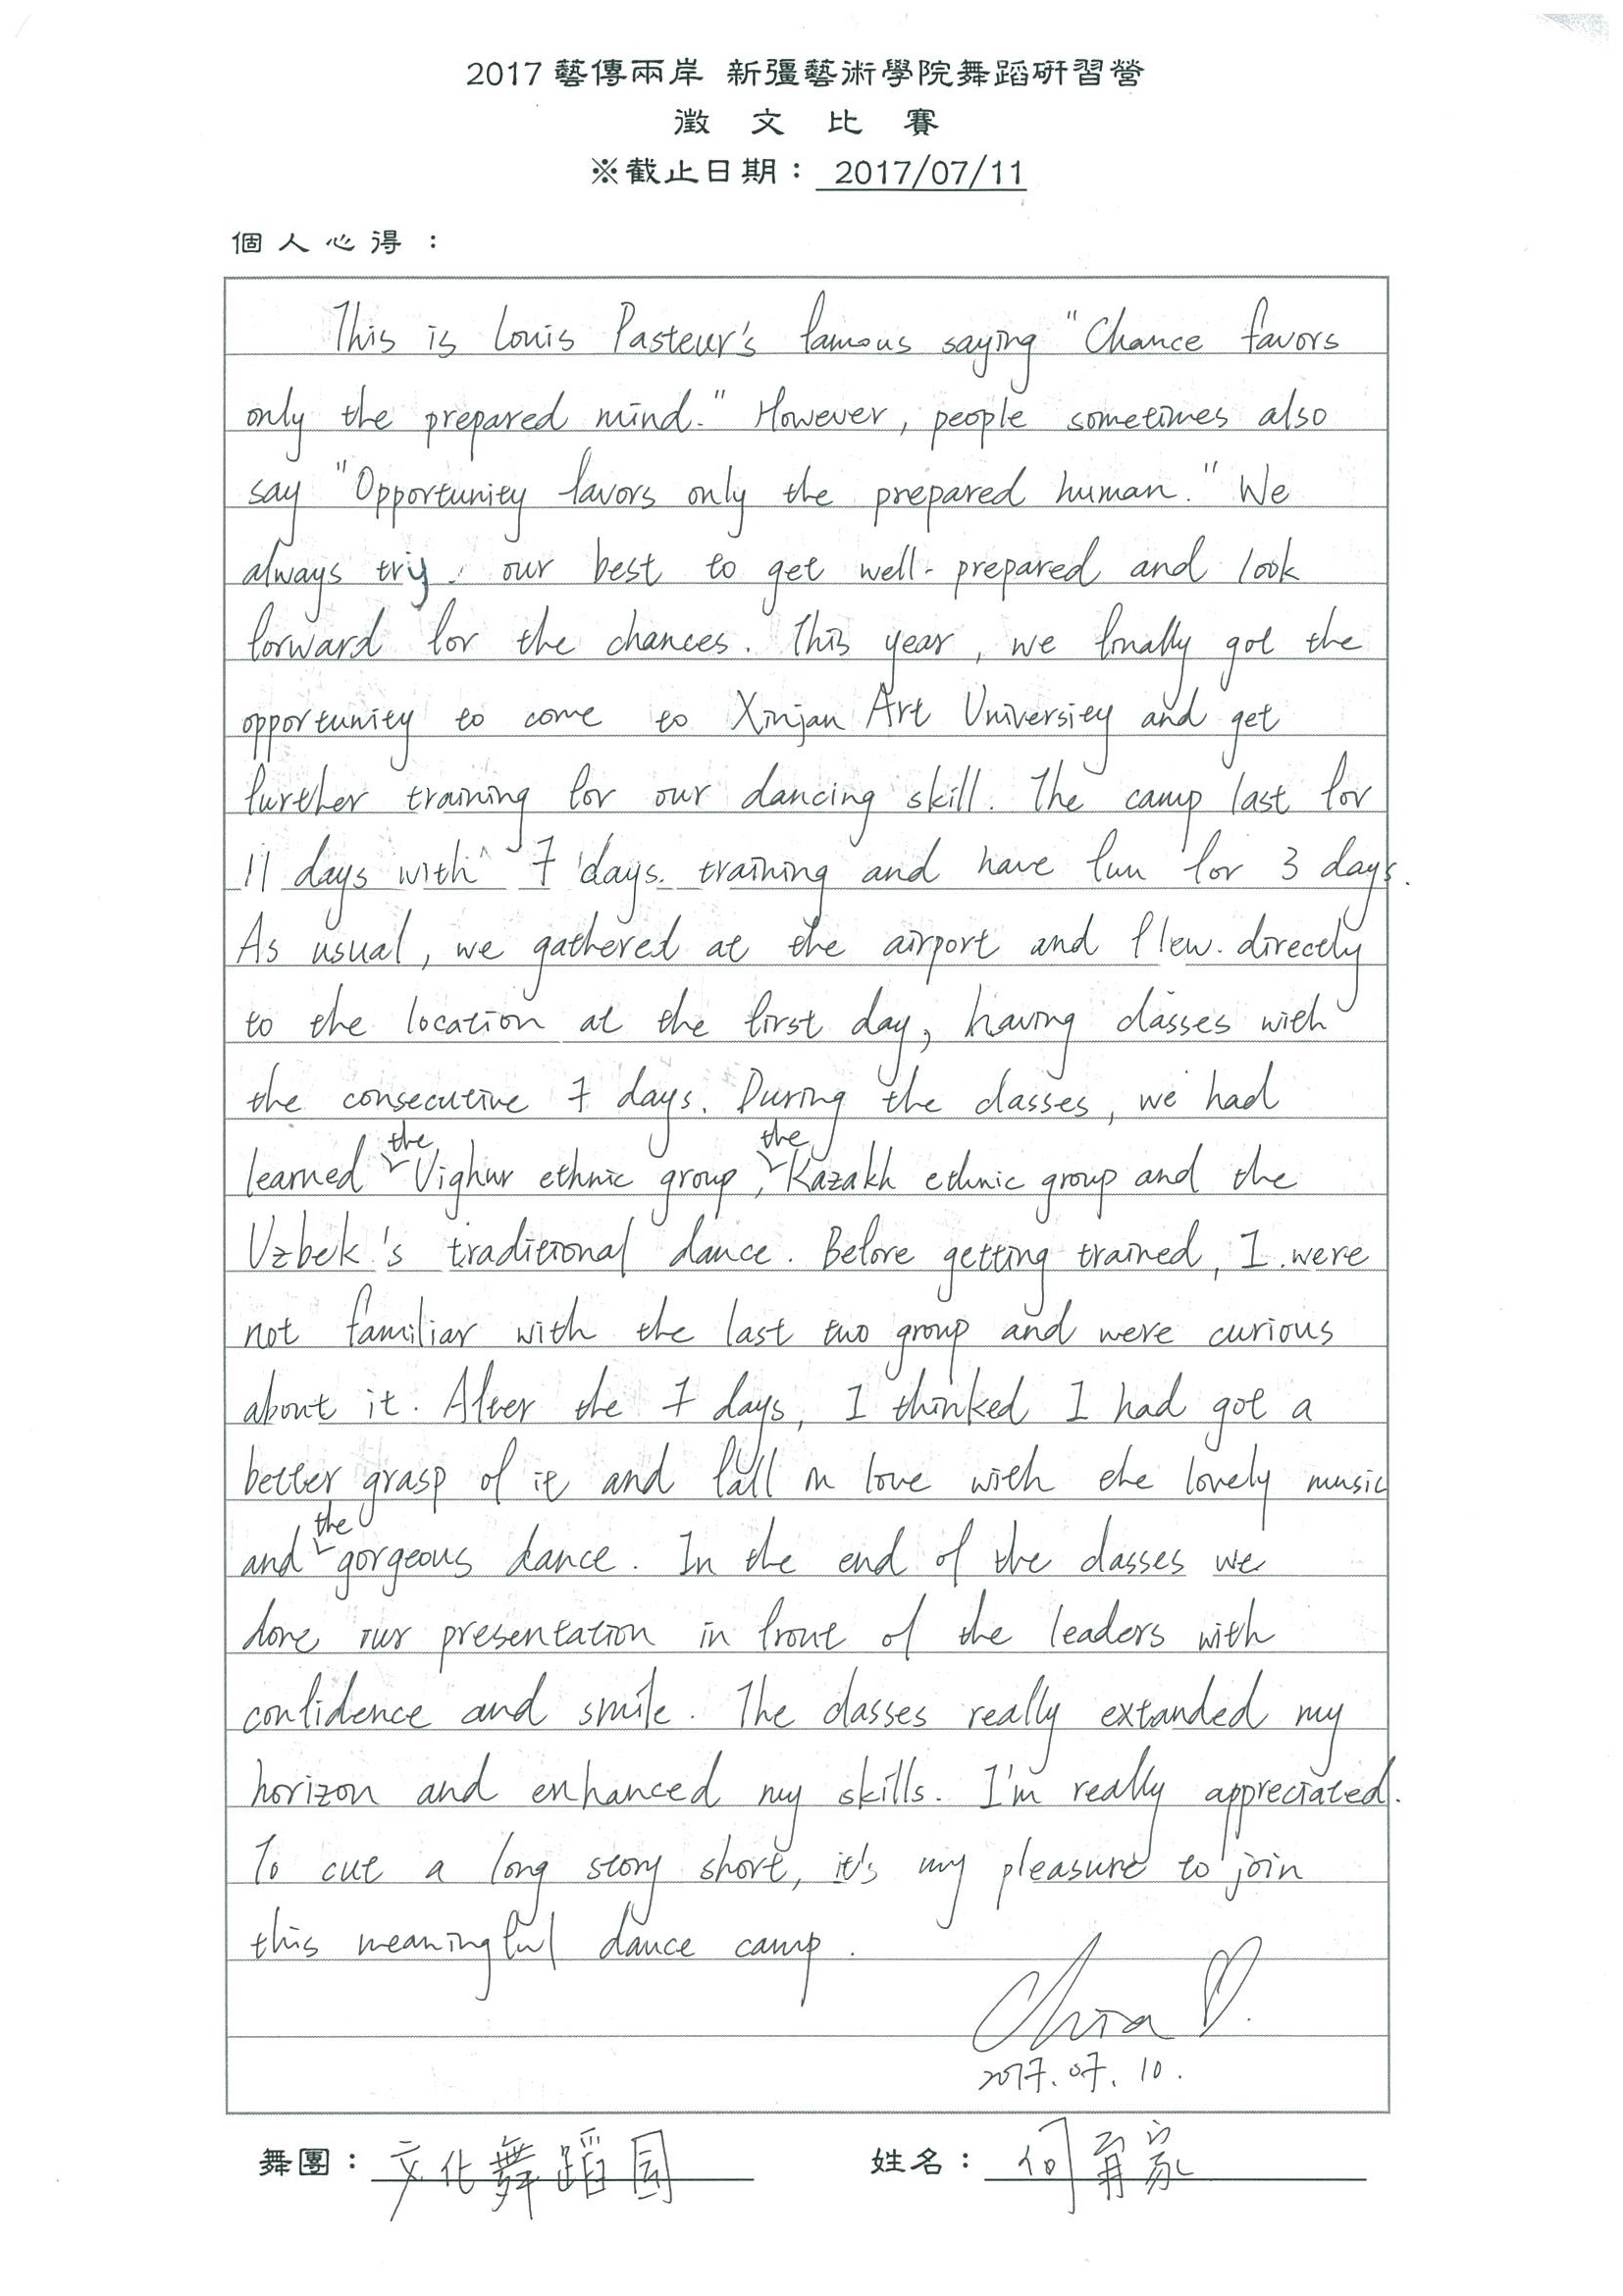 2017 藝傳兩岸 新疆藝術學院舞蹈研習營
徵 文 比 賽
※截止日期： 2017/07/11
個人心得：
This is Louis Pasteur's famous saying "Chance favors
only the prepared mind." However, people sometimes also
say "Opportunity favors only the prepared human." We
always try our best to get well-prepared and look
forward for the chances. This year, we finally got the
opportunity to come to Xinjan Art University and get
further training for our dancing skill. The camp last for
11 days with 7 days training and have fun for 3 days.
As usual, we gathered at the airport and flew directly
to the location at the first day, having classes with
the consecutive 7 days. During the classes, we had
learned the Uighur ethnic group, the Kazakh ethnic group and the
Uzbek's traditional dance. Before getting trained, I were
not familiar with the last two group and were curious
about it. After the 7 days, I thinked I had got a
better grasp of it and fall in love with the lovely music
and the gorgeous dance. In the end of the classes we
done our presentation in front of the leaders with
confidence and smile. The classes really extanded my
horizon and enhanced my skills. I'm really appreciated.
To cut a long story short, it's my pleasure to join
this meaningful dance camp.
2017.07.10.
舞團： 文化舞蹈團
姓名： 何